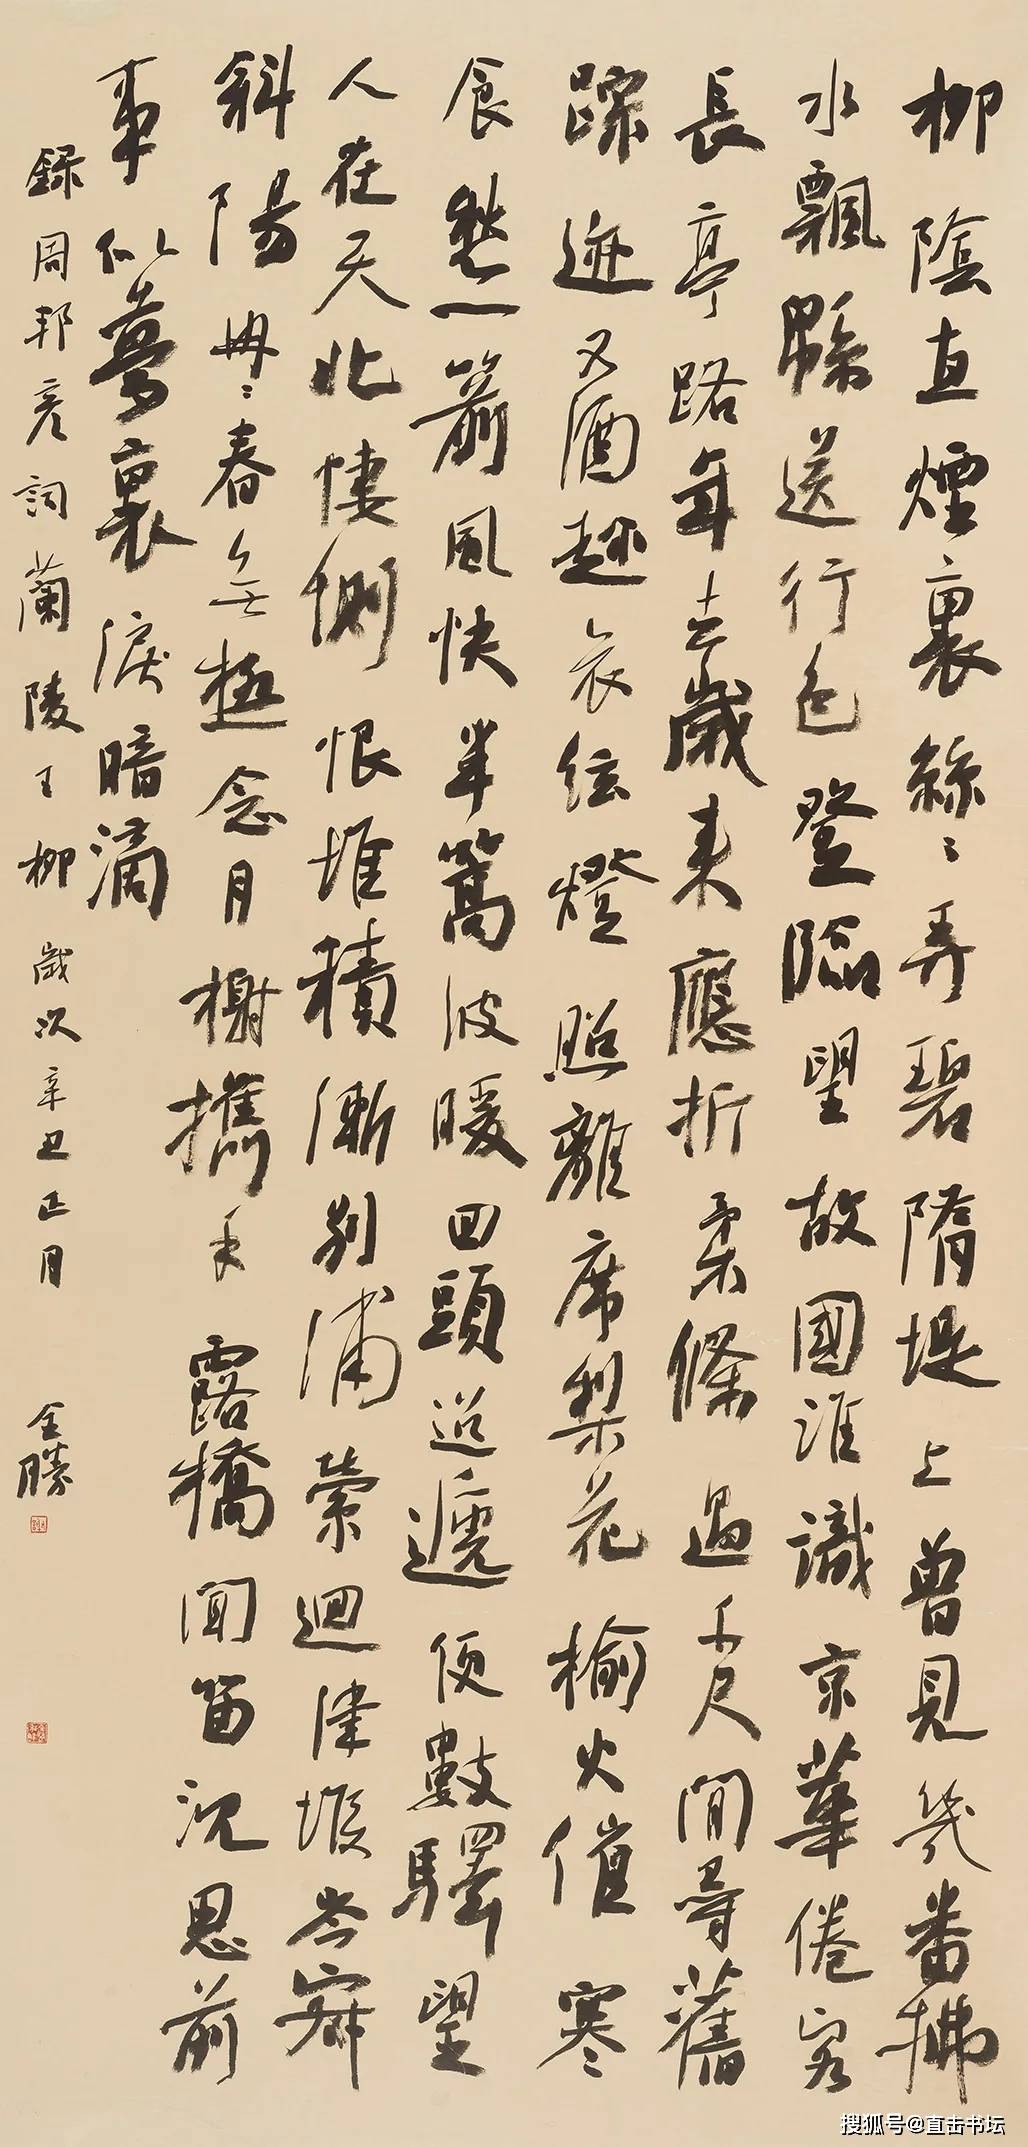 柳陰直煙裏絲〻弄碧隋堤上曾見幾番拂
水飄緜送行色登臨望故國誰識京華倦客
長亭路年去歲來應折柔條過千尺閒尋舊
踪迹又酒趁哀絃燈照離席梨花榆火催寒
食愁一箭風快半篙波暖回頭迢遞便數驛望
人在天北悽惻恨堆積漸別浦縈迴津堠岑寂
斜陽冉〻春無極念月榭攜手露橋聞笛沉思前
事似夢裏淚暗滴
錄周邦彥詞蘭陵王柳歲次辛丑正月 全勝
搜狐号@直击书坛